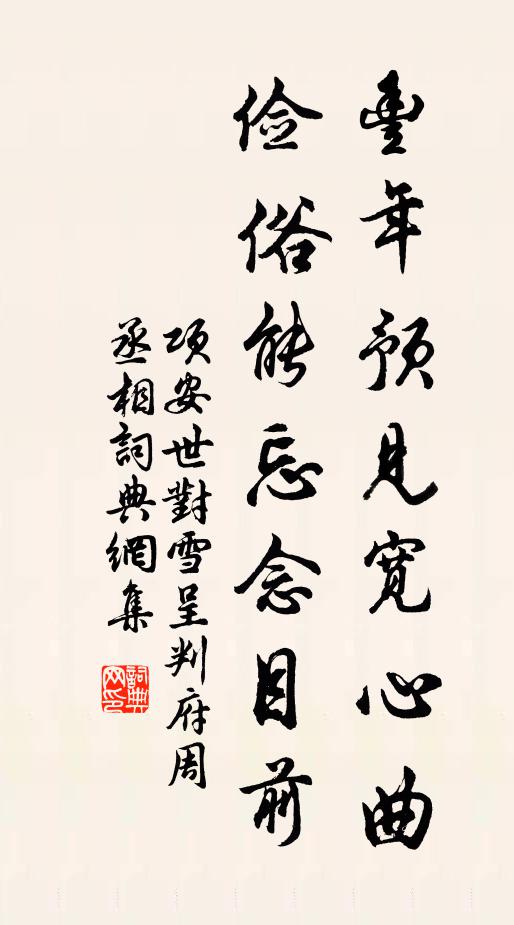 豐年預見寬心曲
儉俗能忘念目前
項安世對雪呈判府周
丞相詞典網集
詞典網印